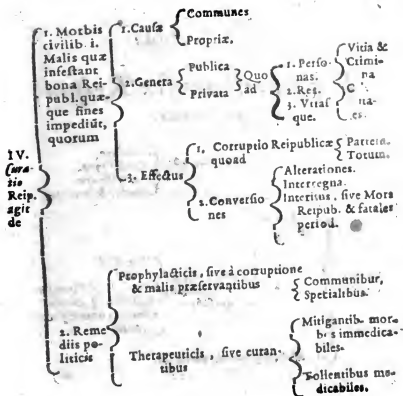 IV.
Curatio
Reip.
agit
de
1. Morbis
civilib. i.
Malis quæ
infestant
bona Rei-
publ. quæ-
que fines
impediũt,
quorum
1. Causæ
Communes
Propriæ,
2. Genera
Publica
Privata
Quo
ad
1. Perso-
nas.
2. Res.
3. Vitas
que.
Vitia &
Crimi
na
3. Effectus
1. Corruptio Reipublicæ
quoad
Partem.
Totum.
2. Conversio
nes
Alterationes.
Interregna.
Interitus, sive Mors
Reipub. & fatales
period.
2. Reme
diis po-
liticis
Prophylacticis, sive à corruptione
& malis præservantibus
Communibus,
Spetialibus.
Therapeuticis, sive curan-
tibus
Mitigantib. mor-
bos immedica-
biles.
Tollentibus me-
dicabiles.